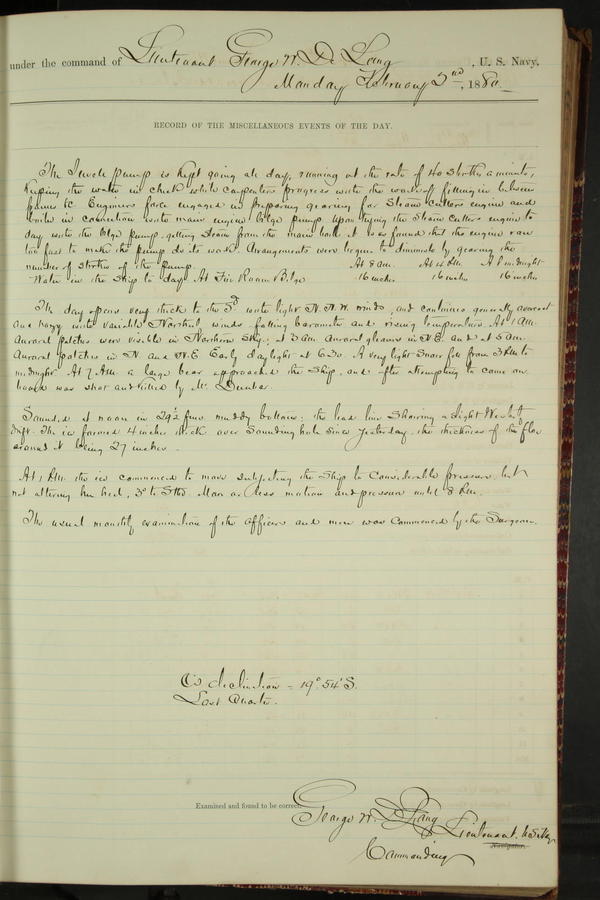 under the command of Lieutenant George W. De Long, U. S. Navy,
Monday February 2nd, 1880
RECORD OF THE MISCELLANEOUS EVENTS OF THE DAY.
The Sewell pump is kept going all day, running at the rate of 40 strokes a minute,
keeping the water in check while carpenters progress with the work of filling in between
frames &c. Engineers force engaged in preparing gearing for Steam Cutters engine and
boiler in connection with main engine bilge pump. Upon trying the Steam Cutters engine to
day with the bilge pump, getting steam from the main boiler it was found that the engine ran
too fast to make the pump do its work. Arrangements were begun to diminish by gearing the
number of strokes of the pump. At 8 am. At 4 PM. At midnight
Water in the ship to day At Fire Room Bilge 16 inches 16 inches 16 inches
The day opens very thick to the Sd with light N.N.W. winds, and continues generally overcast
and hazy with variable Northerly winds, falling barometer and rising temperature. At 1 AM.
Auroral patches were visible in Northern Sky; at 3 am Auroral gleams in N.E. and at 5 am.
Auroral patches in N and N.E. Early daylight at 6.30. A very light snow fell from 3 PM to
midnight. At 7 AM. a large bear approached the ship, and after attempting to come on
board was shot and killed by Mr. Dunbar.
Sounded at noon in 29½ fms. muddy bottom: the lead line showing a slight Westerly
drift. The ice formed 4 inches thick over sounding hole since yesterday, the thickness of the floe
around it being 27 inches.
At 1 PM. the ice commenced to move subjecting the ship to considerable pressure, but
not altering her heel, 3° to Stbd. More or less motion and pressure until 8 PM.
The usual monthly examination of the officers and men was commenced by the Surgeon.
declination = 19° 54' S.
Last Quarter.
Examined and found to be correct.
George W. De Long Lieutenant, U.S. Navy
Navigator.
Commanding